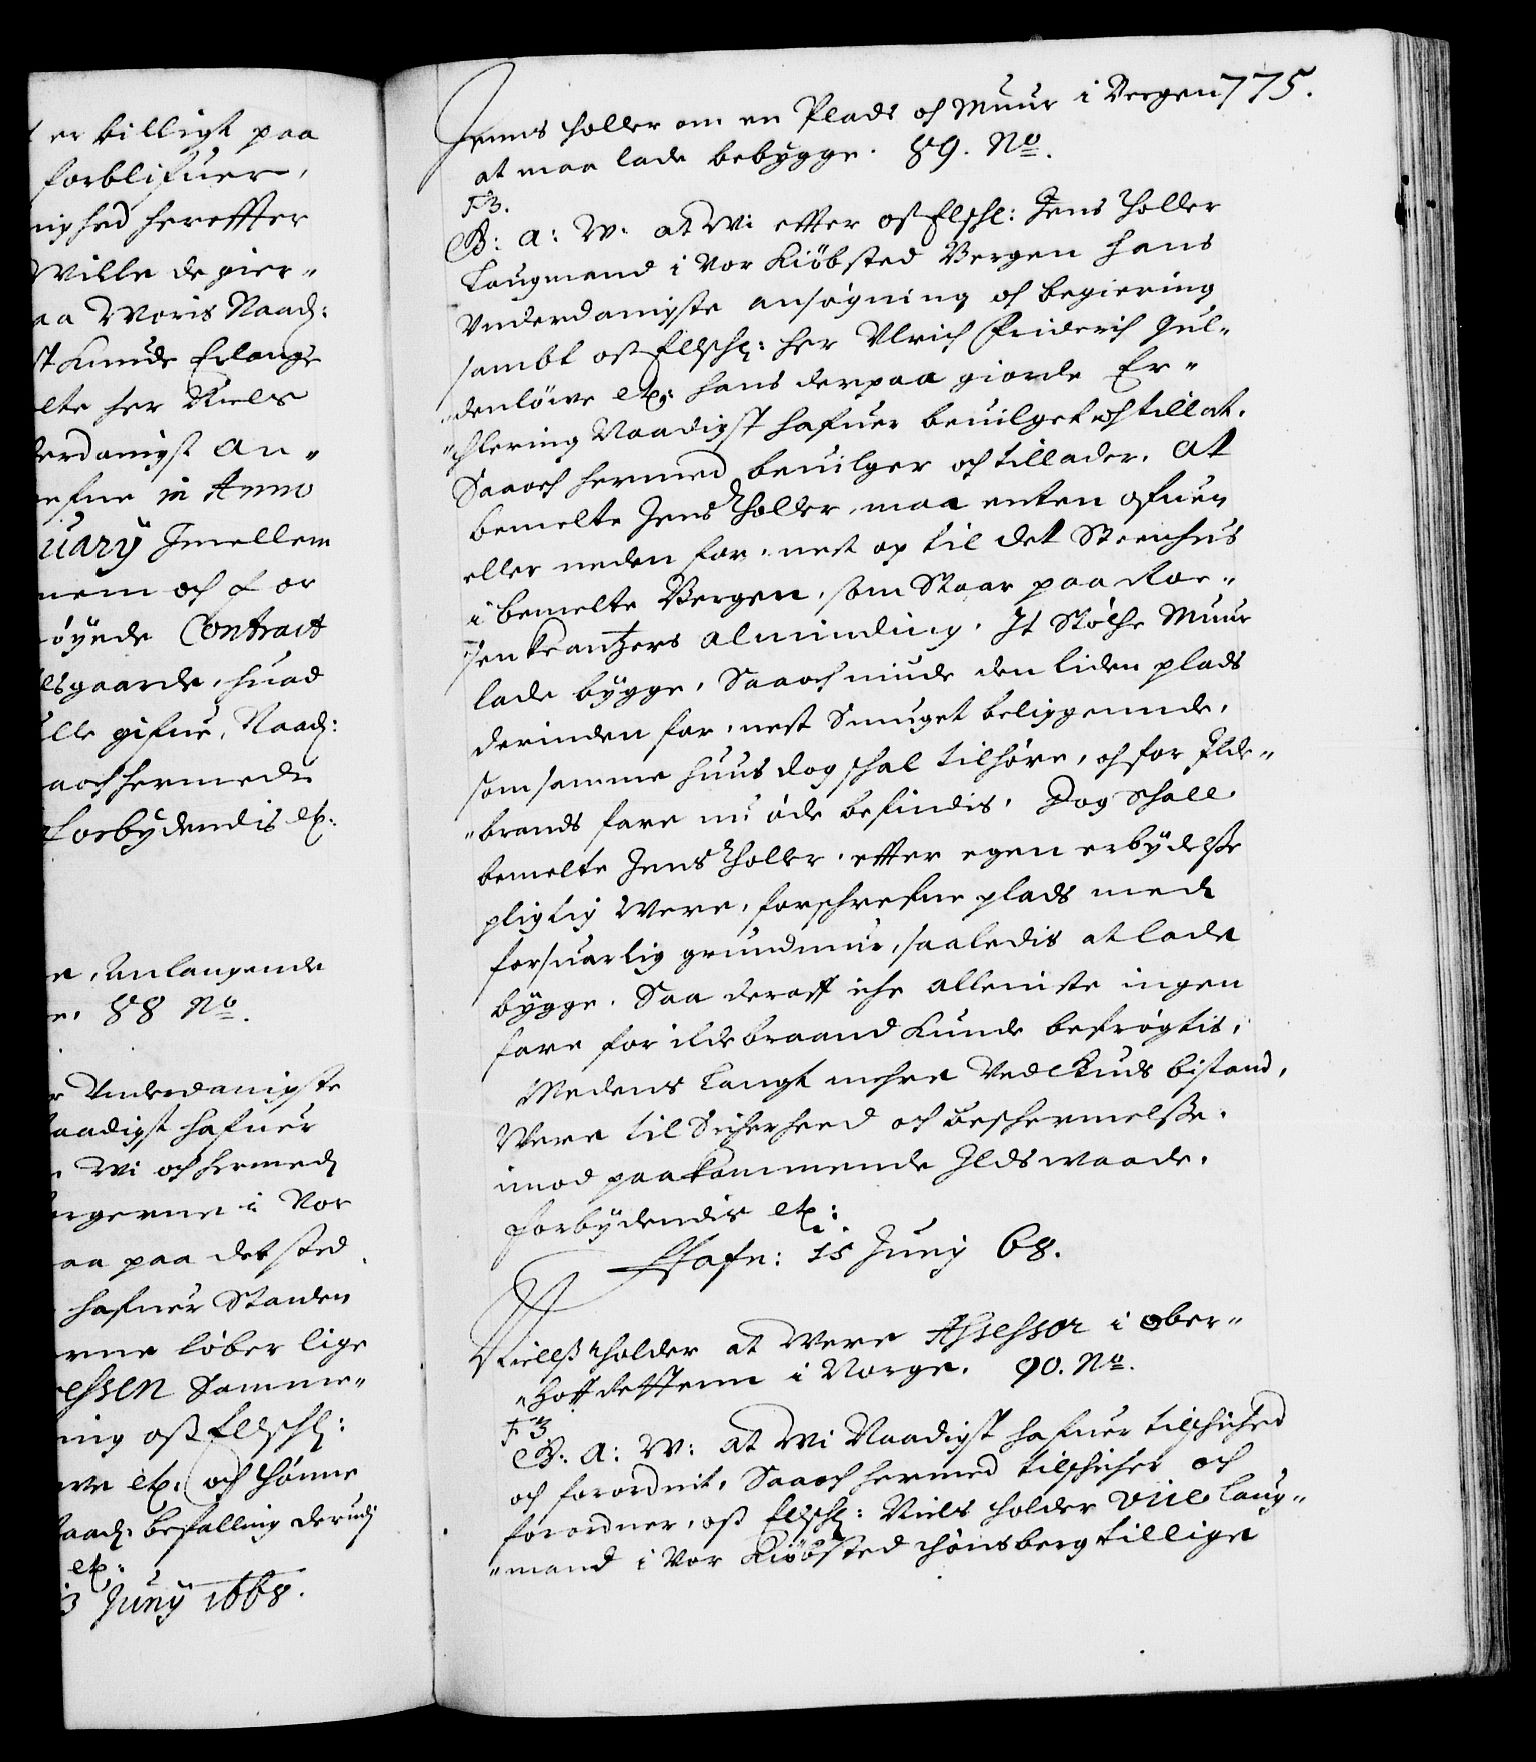 er billigt paa
forblifuer,
nighed hereffter
Wille de gier-
aa Woris Naad:
st Kunde Erlange
elte her Niels
derdanigst an-
efne in Anno
uary Imellem
nem och for
öyede Contract
lsgaarde, huad
lle gifue, Naad:
aoch hermede
forbydendis etc:
e, Anlangende
e, 88 No.
r Underdanigste
aadigst hafuer
Wi och hermed
orgerne i Vor
aa paa det sted
hafuer Standen
rne löber lige
essen Samme-
ing oss Elschl:
we etc: och Hönne
aad: befalling derudj
etc:
3 Junÿ 1668.
775.
Jenns Holler om en Plads och Muur i Bergen
at maa lade bebygge. 89. No.
F3.
G: A: W: at Wi effter oss Elschl: Jens Holler
Laugmand i Vor Kiöbsted Bergen hans
Underdanigste ansögning och begiering
sambt oss Elschl: her Ulrich Friderich Gul-
-denlöwe etc: hans derpaa giorde Er-
-chlering Naadigst hafuer beuilget och tilladt.
Saaoch hermed beuilger och tillader. At
bemelte Jens Holler, maa enten ofuen
eller neden for, nest op til det Steenhus
i bemelte Bergen, som Staar paa Ros-
-senkrantzers Alminding. It Stöche Muur
lade bygge, Saaoch niude den liden plads
derinden for, nest Smuget beliggennde,
som samme huus dog schal tilhöre, och for Ilde-
-brands fare nu öde befindis. Dog Schall
bemelte Jens Holler, effter egen erbydelsse
pligtig Were, forschrefne plads med
forsuarlig grundmur, saaledis at lade
bygge. Saa deraff iche alleniste ingen
fare for ildebraand Kunde befrögtis,
Medens langt mehre Ved Guds bistand,
Were til Sicherheed och beschermelsse,
imod paakommende Ilds waade.
forbydendis etc:
Hafn: 15 Junij 68.
Niellss Holder at Were Assessor i Ober-
-Hoffdetterne i Norge. 90. No.
F3
G: A: W: at Wi Naadigst hafuer tilschichet
och forordnit, Saaoch hermed tilschicher och
forordner, oss Elschl: Niels Holder Vice Laug-
-mand i Vor Kiöbsted Thönsberg tillige